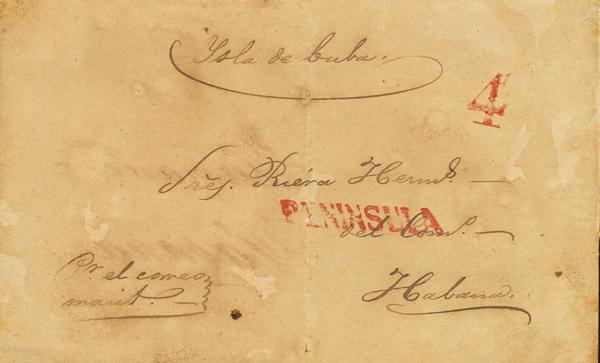 Ysla de Cuba.
4
Sres. Riera Hermos.
PENINSULA
del Como.
Pr. el correo
marit.
Habana.